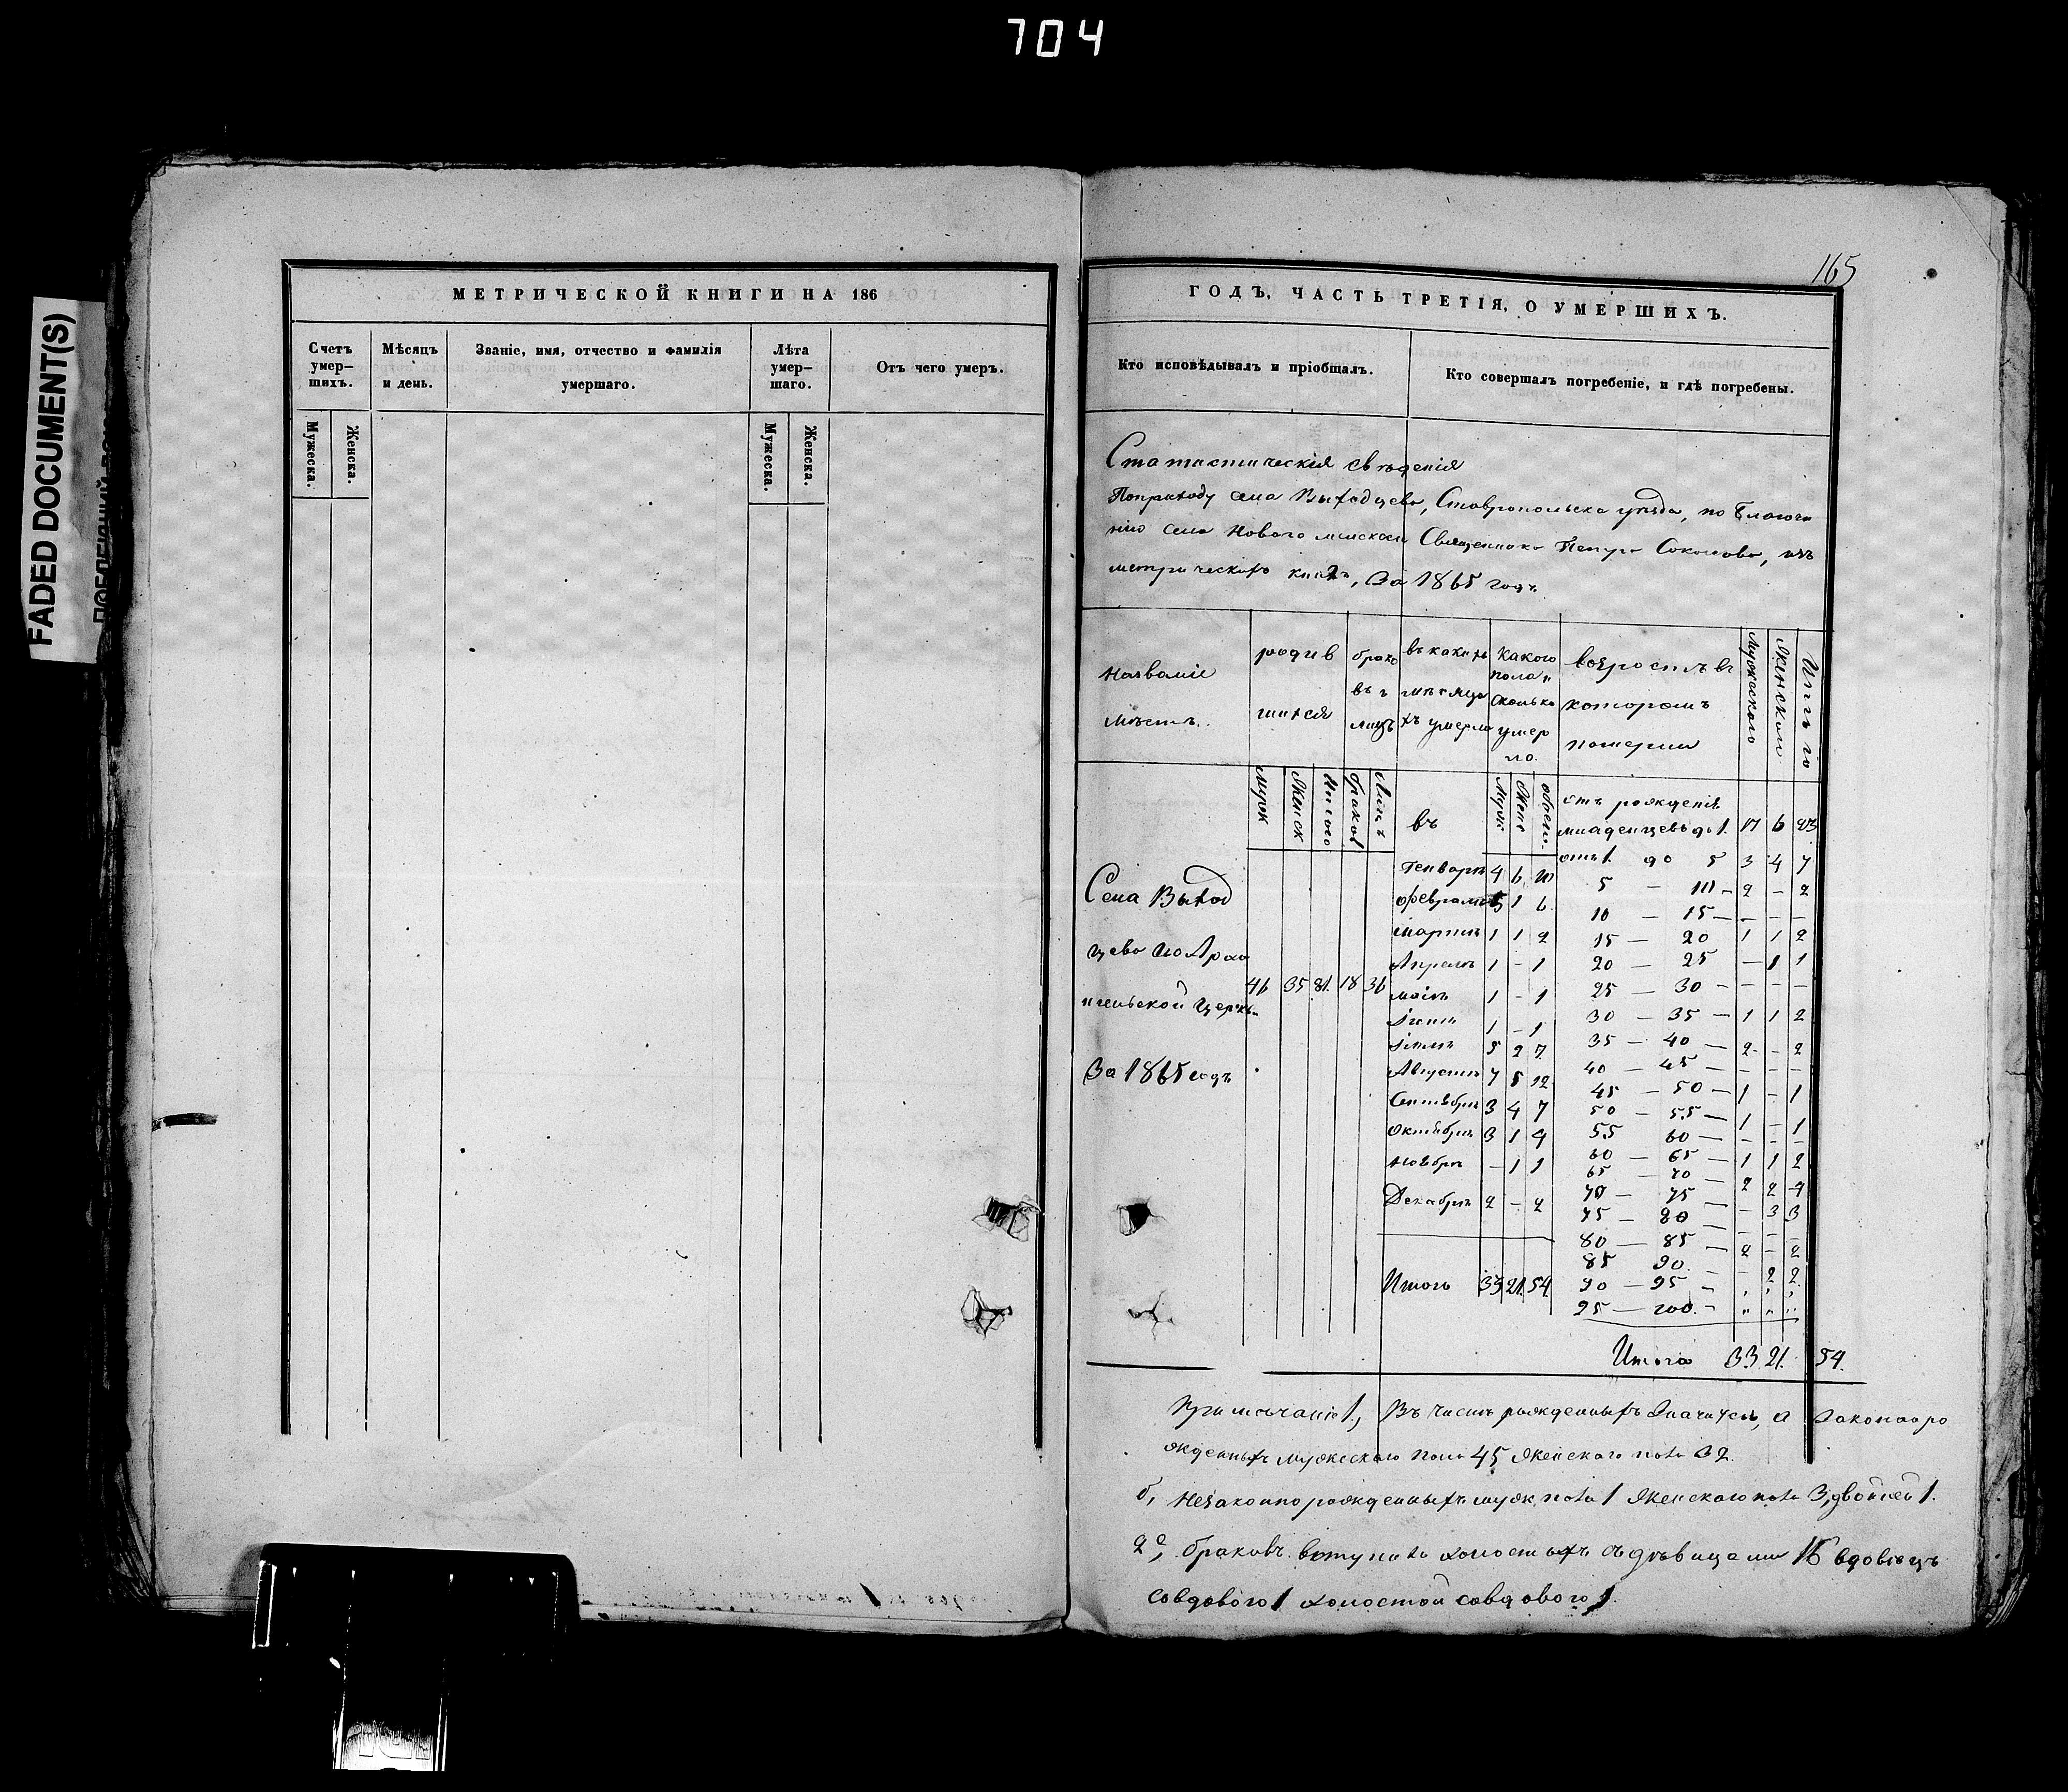 704
165
FADED DOCUMENT(S)
МЕТРИЧЕСКОЙ КНИГИ НА 186
Счетъ умер-
шихъ.
Мѣсяцъ
и день.
Званіе, имя, отчество и фамилія
умершаго.
Лѣта
умер-
шаго.
Отъ чего умеръ.
Мужеска.
Женска.
Мужеска.
Женска.
ГОДЪ, ЧАСТЬ ТРЕТІЯ, О УМЕРШИХЪ.
Кто исповѣдывалъ и пріобщалъ.
Кто совершалъ погребеніе, и гдѣ погребены.
Статистическія свѣденія
По приходу села Выходцева, Ставропольска уѣзда, по благочи
нію села Новаго Священника Петра Соколова, изъ
метрическихъ книгъ, За 1865 годъ.
Названіе
мѣстъ.
родив
шихся
брако
въ и
лицъ
въ какихъ
мѣсяца
хъ умерло
какого
пола и
сколько
умер
ло.
возрастъ въ
которомъ
померли
Мужескаго
Женскаго
Итого
Муж
Женск
Итого
браков
Лицъ
въ
Муж
Женс
обоего.
отъ рожденія
младенцевъ до 1. 17 6 23
отъ 1. до 5 3 4 7
5 — 10 — 2 - 2
10 — 15 — - - -
15 — 20 1 1 2
20 — 25 — 1 1
25 — 30 - - - -
30 — 35 — 1 1 2
35 — 40 — 2 - 2
40 — 45 — - - -
45 — 50 — 1 - 1
50 — 55 — 1 - 1
55 60 — - - -
60 — 65 — 1 1 2
65 — 70 — 2 2 4
70 — 75 — - 3 3
75 — 80 — - - -
80 — 85 — 2 - 2
85 90. - - 2 2
90 — 95 - " " "
95 — 100. - " " "
Итого 33 21. 54.
Генварѣ 4 6 10
февралѣ 5 1 6
мартѣ 1 1 2
Апрелѣ 1 - 1
маіѣ 1 - 1
Іюнѣ 1 - 1
Іюлѣ 5 2 7
Августѣ 7 5 12
Сентябрѣ 3 4 7
Октябрѣ 3 1 4
Ноябрѣ - 1 1
Декабрѣ 2 - 2
Итого 33 21. 54.
Села Выход
цева По Арха
нгельской церкв.
За 1865 годъ
46 35 81. 18 36
Примѣчаніе 1., Въ числѣ рожденныхъ значутся, а Законноро
жденныхъ мужескаго пола 45 женскаго пола 32.
б, Незаконнорожденныхъ муж. пола 1 женскаго пола 3, двойней 1.
2е, браковъ вступило холостыхъ съ дѣвицами 16 вдовецъ
со вдовою 1 холостой со вдовою 1.